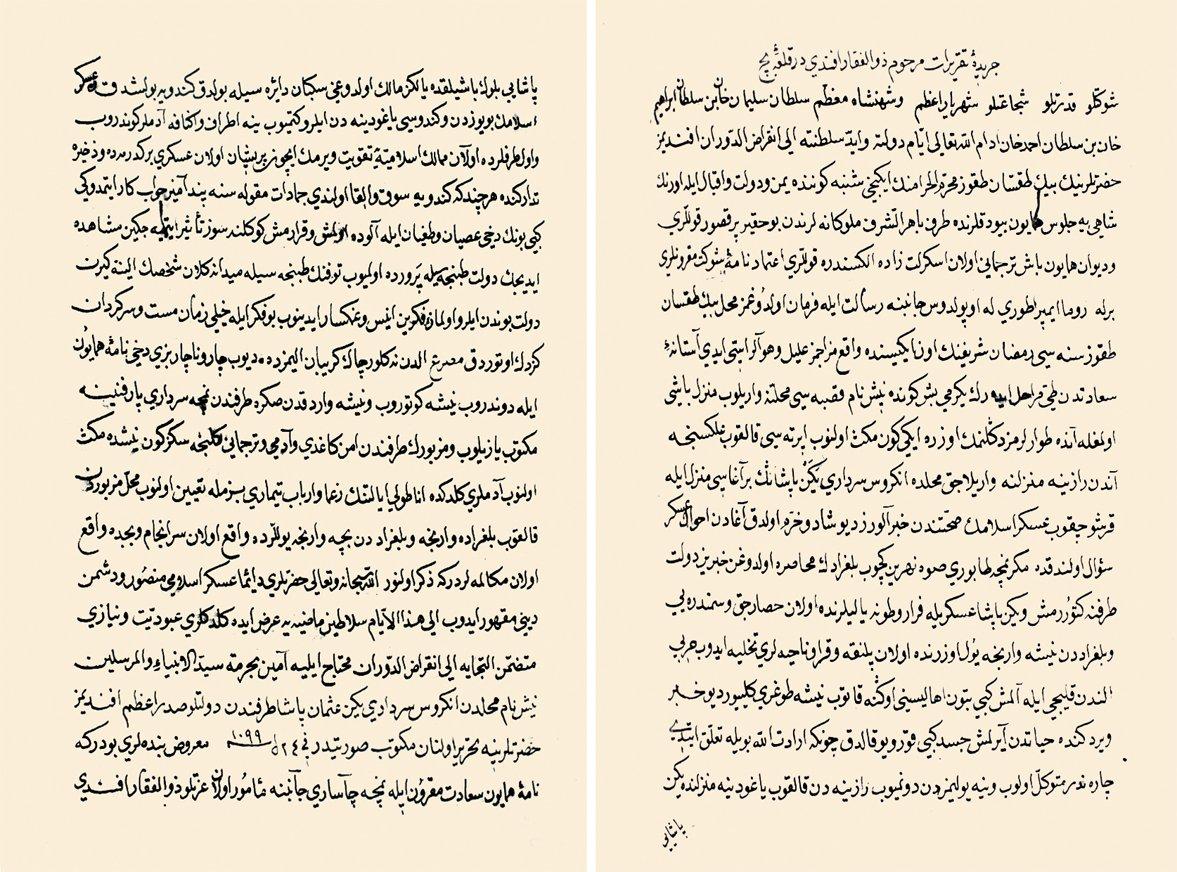 جریدهٔ تقریرات مرحوم ذوالفقار افندی در قلعهٔ بچ
شوکتلو قدرتلو شجاعتلو شهریار اعظم وشهنشاه معظم سلطان سلیمان خان بن سلطان ابراهیم
خان بن سلطان احمد خان ادام الله تعالی ایام دولته وابد سلطنته الی انقراض الدوران افندیمز
حضرتلرینك بیك طقسان طقوز محرم الحرامنك ایکیجی شنبه کوننده یمن ودولت واقبال ایله اورنك
شاهی یه جلوس همایون بیوردقلرنده طرف باهر الشرف ملوکانه لرندن بو حقیر پر قصور قوللری
ودیوان همایون باش ترجمانی اولان اسکرلت زاده الکسندره قوللری اعتماد نامهٔ شوکت مقرونلری
برله روما ایمپراطوری له اوپولدوس جانبنه رسالت ایله فرمان اولدوغمز محل بیك طقسان
طقوز سنه سی رمضان شریفنك اون ایکیسنده واقع مزاجمز علیل وهوا لر ایسی ایدی آستانهٔ
سعادتدن طی مراحل ایده رك یکرمی بش کونده نیش نام قصبه سی محلنه واریلوب منزل باشی
اولمغله آنده طوارلرمز دکلنمك اوزره ایکی کون مکث اولنوب ایرته سی قالقوب
آندن رازینه منزلنه واریلاجق محلده انکروس سرداری یکن پاشانك بر آغاسی منزل ایله
قرشو چقوب عسکر اسلامك صحتندن خبر آلورز دیو شاد وخرم اولدق آغادن احوال عسکر
سؤال اولندقده مکر نمچه لها بوری صوه نهرین کچوب بلغرادك محاصره اولدوغن خبرین دولت
طرفنه کتوررمش ویکن پاشا عسکریله فرار وطونه یالیلرنده اولان حصارجق وسمندره یی
وبلغراددن نیشه وارنجه یول اوزرنده اولان پلنقه وقرا وناحیه لری تخلیه ایدوب حربی
الندن قلیجی ایله آلمش کبی بتون اهالیسنی اوکنه قاتوب نیشه طوغری کلیور دیو خبر
ویردکنده حیاتدن آیرلمش جسد کبی قورو یو قالدق چونکه ارادت الله بویله تعلق ایتدی
چاره ندر متوکل اولوب وینه یولمزدن دونمیوب رازینه دن قالقوب یاغودینه منزلنده یکن
پاشایی
پاشایی بلوك باشیلقده یالکز مالك اولدوغی سکبان دائره سیله بولدق کندویه بولشدق وعسکر
اسلامك بویوزدن وکندوسی یاغودینه دن ایلرو کتمیوب ینه اطراف واکنافه آدملر کوندروب
واول طرفلرده اولان ممالك اسلامیه یه تقویت ویرمك ایچون پریشان اولان عسکری برکدرمده وذخیره
تدارکنده هر چند که کندویه سوق والقا اولندی جمادات مقوله سنه پند آمیز جواب کار ایتمدوکی
کبی بونك دخی عصیان وطغیان ایله آلوده اولمش وقرارمش کوکلنه سوز تأثیر ایتمیه جکین مشاهده
ایدیجك دولت طبنجه سیله پرورده اولمیوب توفنك طبنجه سیله میدانه کلان شخصك الینه کیرن
دولت بوندن ایلرو اولماز فکرین انیس وغمکسار ایدینوب بو فکر ایله خیلی زمان مست وسرکردان
کزدك اوتوردق مصرع الدن نه کلور چاك کریبان الیمزده • دیوب چار وناچار بزی دخی نامهٔ همایون
ایله دوندروب نیشه کوتوروب ونیشه واردقدن صکره طرفندن نمچه سرداری پارقنینه
مکتوب یازیلوب ومزبورك طرفندن امن کاغدی وآدمی وترجمانی کلنجه سکز کون نیشده مکث
اولنوب آدملری کلدکده اناطولی ایالتنك زعما وارباب تیماری بزمله تعیین اولنوب محل مزبوردن
قالقوب بلغراده وارنجه وبلغراددن بچه وارنجه یوللرده واقع اولان سرانجام وبجده واقع
اولان مکالمه لردر که ذکر اولنور الله سبحانه وتعالی حضرتلری دائما عسکر اسلامی منصور ودشمن
دینی مقهور ایدوب الی هذا الایام سلاطین ماضیه یه عرض ایده کلدکلری عبودیت ونیازی
متضمن التجایه الی انقراض الدوران محتاج ایلیه آمین بحرمة سید الانبیاء والمرسلین
نیش نام محلدن انکروس سرداری یکن عثمان پاشا طرفندن دولتلو صدر اعظم افندیمز
حضرتلرینه تحریر اولنان مکتوب صورتیدر فی ٢٤ ل ١٠٩٩ معروض بنده لری بودر که
نامهٔ همایون سعادت مقرون ایله نمچه چاساری جانبنه مأمور اولان عزتلو ذوالفقار افندی